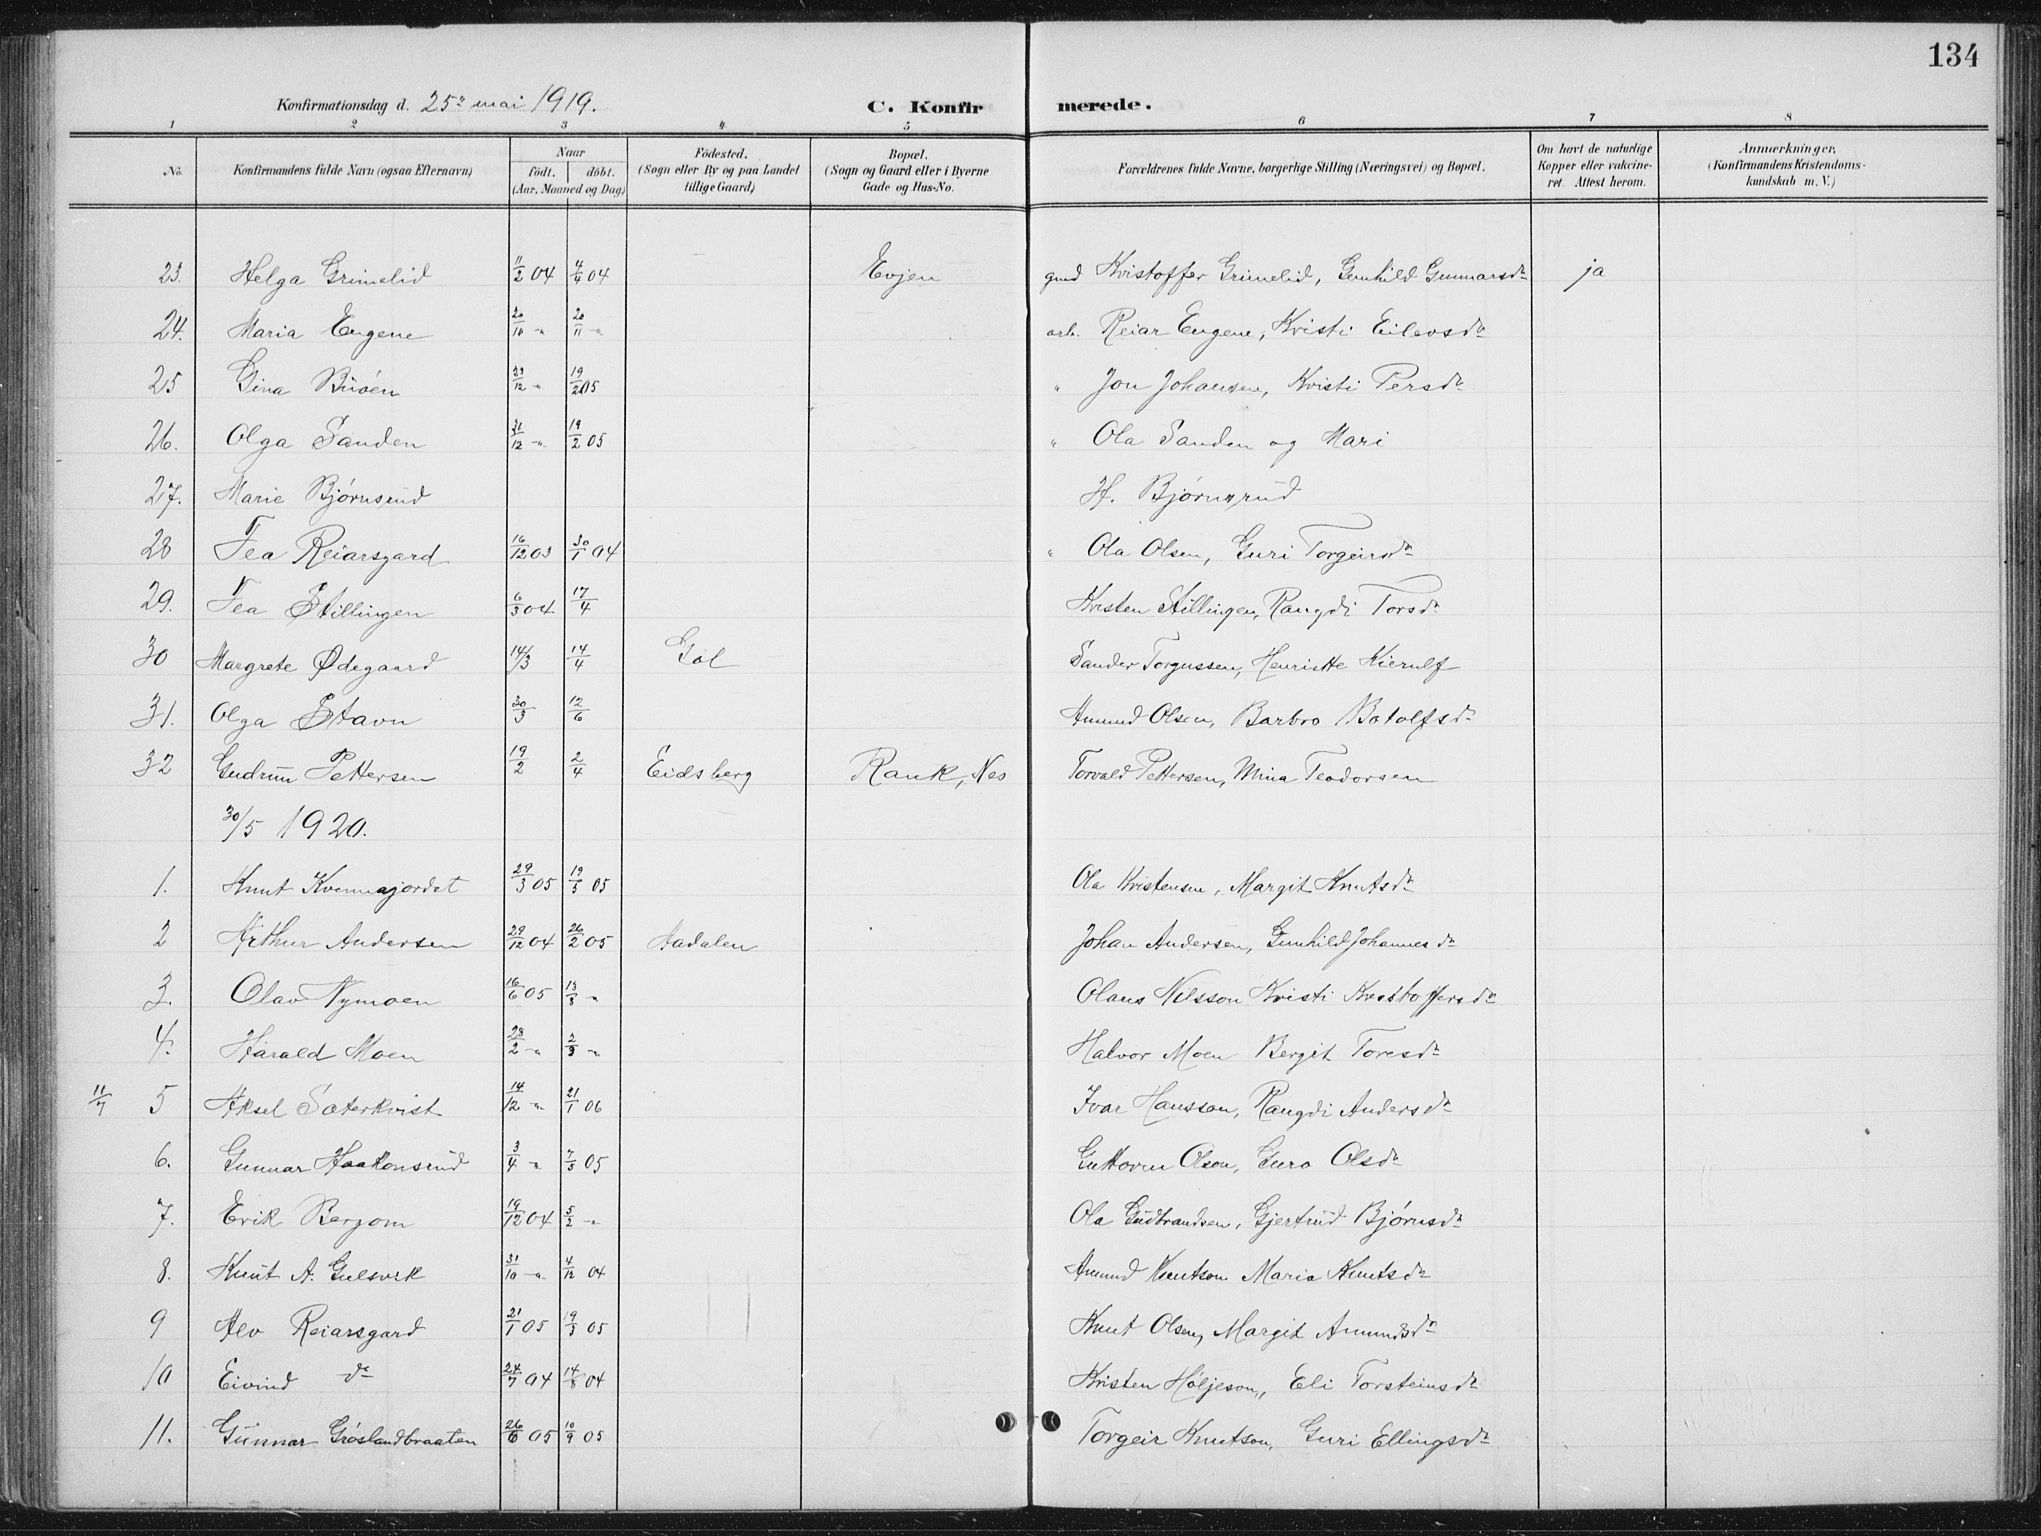 134
Konfirmationsdag d. 25de mai 1919. C. Konfirmerede.
1 2 3 4 5 6 7 8
No. Konfirmandens fulde Navn (ogsaa Efternavn) Naar født. døbt. (Aar, Maaned og Dag) Fødested. (Sogn eller By og paa Landet tillige Gaard) Bopæl. (Sogn og Gaard eller i Byerne Gade og Hus-No. Forældrenes fulde Navne, borgerlige Stilling (Næringsvei) og Bopæl. Om havt de naturlige Kopper eller vakcineret. Attest herom. Anmærkninger. (Konfirmandens Kristendomskundskab m. V.)
23. Helga Grimelid 11/2 04 4/4 04 Evjen gmd Kristoffer Grimelid, Gunhild Gunnarsdr ja
24. Maria Engene 20/10 -"- 20/11 -"- arb. Reiar Engene, Kristi Eilevsdr
25 Gina Buøen 23/12 -"- 19/2 05 " Jon Johansen, Kristi Persdr
26. Olga Sanden 31/12 -"- 19/2 05 " Ola Sanden og Mari
27. Marie Bjørnsrud H. Bjørnsrud
28 Tea Reiarsgard 16/12 03 30/1 04 " Ola Olsen, Guri Torgeirsdr
29. Tea Stillingen 6/3 04 17/4 Kristen Stillingen, Rangdi Torsdr
30 Margrete Ødegaard 14/3 14/4 Gol Sander Torgussen, Henriette Kierulf
31. Olga Stavn 30/3 12/6 Amund Olsen, Barbro Botolfsdr
32 Gudrun Pettersen 19/2 2/4 Eidsberg Rauk, Nes Torvald Pettersen, Mina Teodorsen
30/5 1920.
1. Knut Kvennajordet 29/3 05 19/5 05 Ola Kristensen, Margit Knutsdr
2 Arthur Andersen 29/12 04 26/2 05 Aadalen Johan Andersen, Gunhild Johannesdr
3. Olav Nymoen 16/6 05 13/8 -"- Olaus Nilsson Kristi Kristoffersdr
4. Harald Moen 28/2 -"- 2/9 -"- Halvor Moen Bergit Toresdr
11/7 5 Aksel Sæterkvist 14/12 -"- 21/1 06 Ivar Hansson, Rangdi Andersdr
6. Gunnar Haakonsrud 3/4 -"- 7/5 05 Guttorm Olson, Guro Olsdr
7. Erik Bergom 19/12 04 5/2 -"- Ola Gudbrandsen, Gjertrud Bjørnsdr
8. Knut A. Gulsvik 31/10 -"- 4/12 04 Amund Knutson Maria Knutsdr
9 Alv Reiarsgard 21/1 05 19/3 05 Knut Olsen, Margit Amundsdr
10 Eivind do 24/7 04 14/8 04 Kristen Høljeson, Eli Torsteinsdr
11. Gunnar Grøslandbraaten 26/6 05 10/9 05 Torgeir Knutson, Guri Ellingsdr